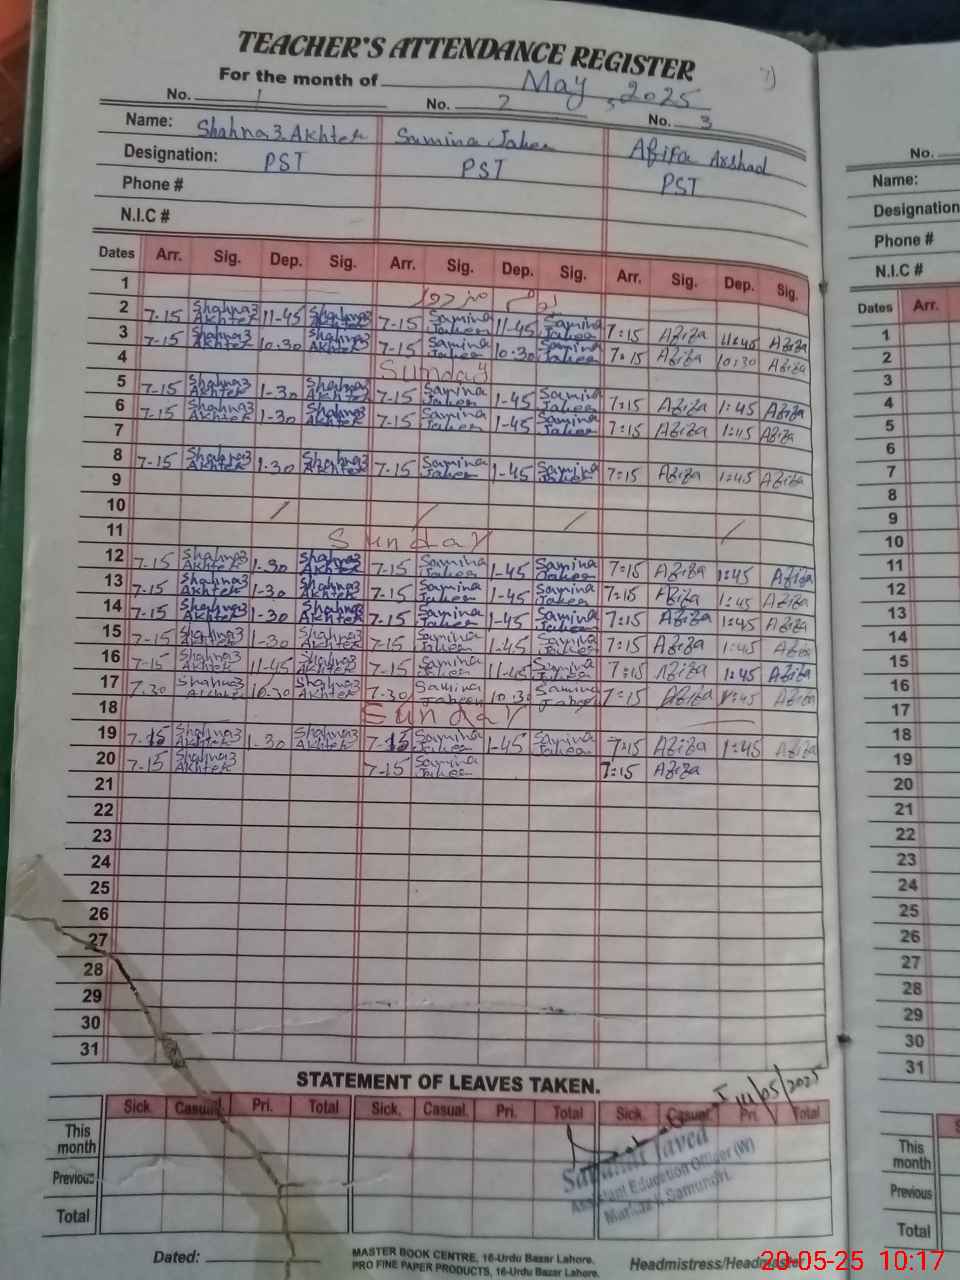 TEACHER'S ATTENDANCE REGISTER
For the month of May, 2025
No. 1 No. 2 No. 3
Name: Shahnaz Akhter Samina Jabeen Afifa Arshad
Designation: PST PST PST
Phone #
N.I.C #
Dates Arr. Sig. Dep. Sig. Arr. Sig. Dep. Sig. Arr. Sig. Dep. Sig.
1
2 7-15 Shahnaz Akhter 11-45 Shahnaz Akhter 7-15 Samina Jabeen 11-45 Samina Jabeen 7:15 Afifa 11:45 Afifa
3 7-15 Shahnaz Akhter 10:30 Shahnaz Akhter 7-15 Samina Jabeen 10:30 Samina Jabeen 7:15 Afifa 10:30 Afifa
4 Sunday
5 7-15 Shahnaz Akhter 1-30 Shahnaz Akhter 7-15 Samina Jabeen 1-45 Samina Jabeen 7:15 Afifa 1:45 Afifa
6 7-15 Shahnaz Akhter 1-30 Shahnaz Akhter 7-15 Samina Jabeen 1-45 Samina Jabeen 7:15 Afifa 1:45 Afifa
7
8 7-15 Shahnaz Akhter 1-30 Shahnaz Akhter 7-15 Samina Jabeen 1-45 Samina Jabeen 7:15 Afifa 1:45 Afifa
9
10
11 Sunday
12 7-15 Shahnaz Akhter 1-30 Shahnaz Akhter 7-15 Samina Jabeen 1-45 Samina Jabeen 7:15 Afifa 1:45 Afifa
13 7-15 Shahnaz Akhter 1-30 Shahnaz Akhter 7-15 Samina Jabeen 1-45 Samina Jabeen 7:15 Afifa 1:45 Afifa
14 7-15 Shahnaz Akhter 1-30 Shahnaz Akhter 7-15 Samina Jabeen 1-45 Samina Jabeen 7:15 Afifa 1:45 Afifa
15 7-15 Shahnaz Akhter 1-30 Shahnaz Akhter 7-15 Samina Jabeen 1-45 Samina Jabeen 7:15 Afifa 1:45 Afifa
16 7-15 Shahnaz Akhter 11-45 Shahnaz Akhter 7-15 Samina Jabeen 11-45 Samina Jabeen 7:15 Afifa 1:45 Afifa
17 7-30 Shahnaz Akhter 10-30 Shahnaz Akhter 7-30 Samina Jabeen 10:30 Samina Jabeen 7:15 Afifa 1:45 Afifa
18 Sunday
19 7-15 Shahnaz Akhter 1-30 Shahnaz Akhter 7-15 Samina Jabeen 1-45 Samina Jabeen 7:15 Afifa 1:45 Afifa
20 7-15 Shahnaz Akhter 7-15 Samina Jabeen 7:15 Afifa
21
22
23
24
25
26
27
28
29
30
31
STATEMENT OF LEAVES TAKEN.
Sick. Casual. Pri. Total Sick. Casual. Pri. Total Sick. Casual. Pri. Total
This month
Previous
Total
14/05/2025
Javed
Assistant Education Officer (W)
Markaz Samundri.
Dated:
MASTER BOOK CENTRE, 16-Urdu Bazar Lahore.
PRO FINE PAPER PRODUCTS, 16-Urdu Bazar Lahore.
Headmistress/Headmaster
No.
Name:
Designation
Phone #
N.I.C #
Dates Arr.
1
2
3
4
5
6
7
8
9
10
11
12
13
14
15
16
17
18
19
20
21
22
23
24
25
26
27
28
29
30
31
This month
Previous
Total
20-05-25 10:17